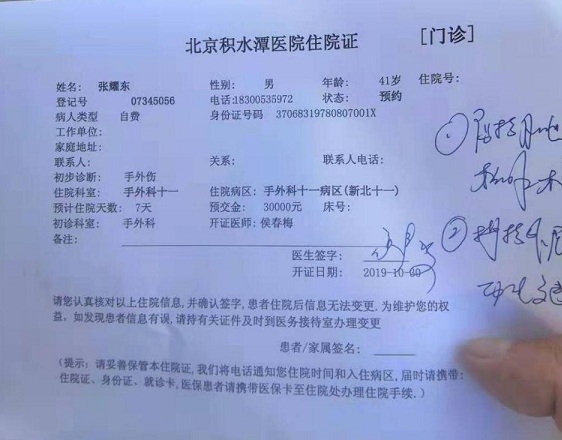 北京积水潭医院住院证 [门诊]
姓名: 张耀东 性别: 男 年龄: 41岁 住院号:
登记号 07345056 电话:18300535972 状态: 预约
病人类型 自费 身份证号码 37068319780807001X
工作单位:
家庭地址:
联系人: 关系: 联系人电话:
初步诊断: 手外伤
住院科室: 手外科十一 住院病区: 手外科十一病区(新北十一)
预计住院天数: 7天 预交金: 30000元 床号:
初诊科室: 手外科 开证医师: 侯春梅
备注:
医生签字:
开证日期: 2019-10-00
请您认真核对以上住院信息,并确认签字,患者住院后信息无法变更.为维护您的权
益,如发现患者信息有误,请持有关证件及时到医务接待室办理变更
患者/家属签名:
(提示:请妥善保管本住院证,我们将电话通知您住院时间和入住病区,届时请携带:
住院证、身份证、就诊卡,医保患者请携带医保卡至住院处办理住院手续.)
①
②